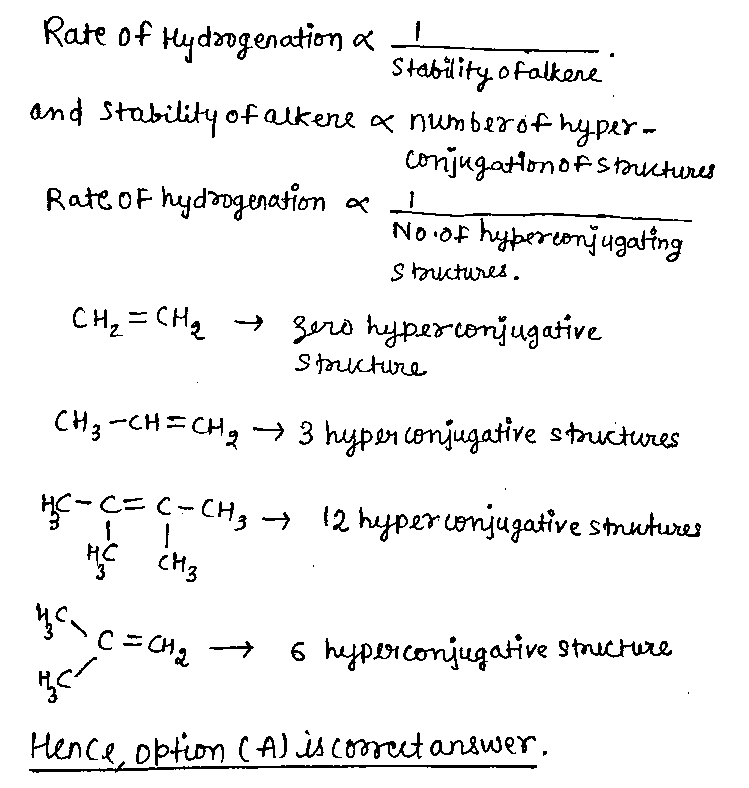 Rate of Hydrogenation ∝ 1 / Stability of alkene .
and Stability of alkene ∝ number of hyper-
conjugation of structures
Rate of hydrogenation ∝ 1 / No. of hyperconjugating
structures.
CH₂ = CH₂ → zero hyperconjugative
structure
CH₃ - CH = CH₂ → 3 hyperconjugative structures
H₃C - C = C - CH₃ → 12 hyperconjugative structures
H₃C CH₃
H₃C
C = CH₂ → 6 hyperconjugative structure
H₃C
Hence, option (A) is correct answer.